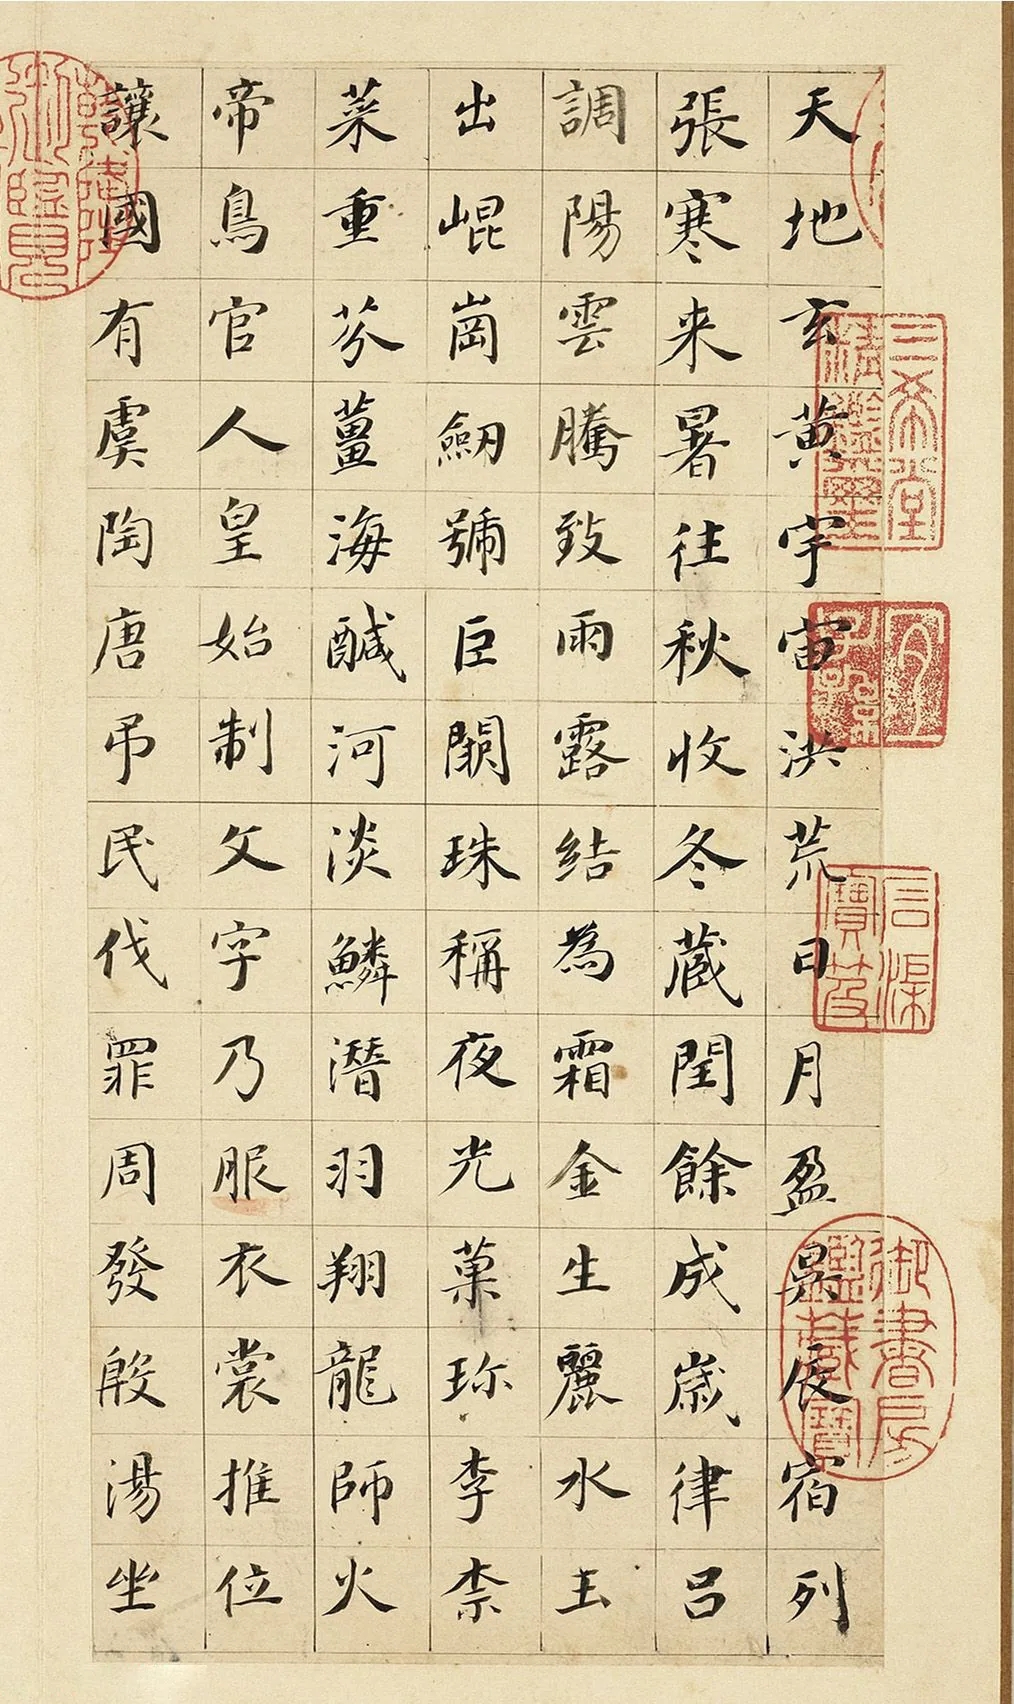 天地玄黃宇宙洪荒日月盈昃辰宿列
張寒来暑往秋收冬蔵閏餘成歲律呂
調陽雲騰致雨露結為霜金生麗水玉
出崐崗劒號巨闕珠稱夜光菓珎李柰
菜重芥薑海醎河淡鱗潛羽翔龍師火
帝鳥官人皇始制文字乃服衣裳推位
讓國有虞陶唐吊民伐罪周發殷湯坐
三希堂精鑑璽
宜子孫
石渠寶笈
御書房鑑藏寶
乾隆御覽